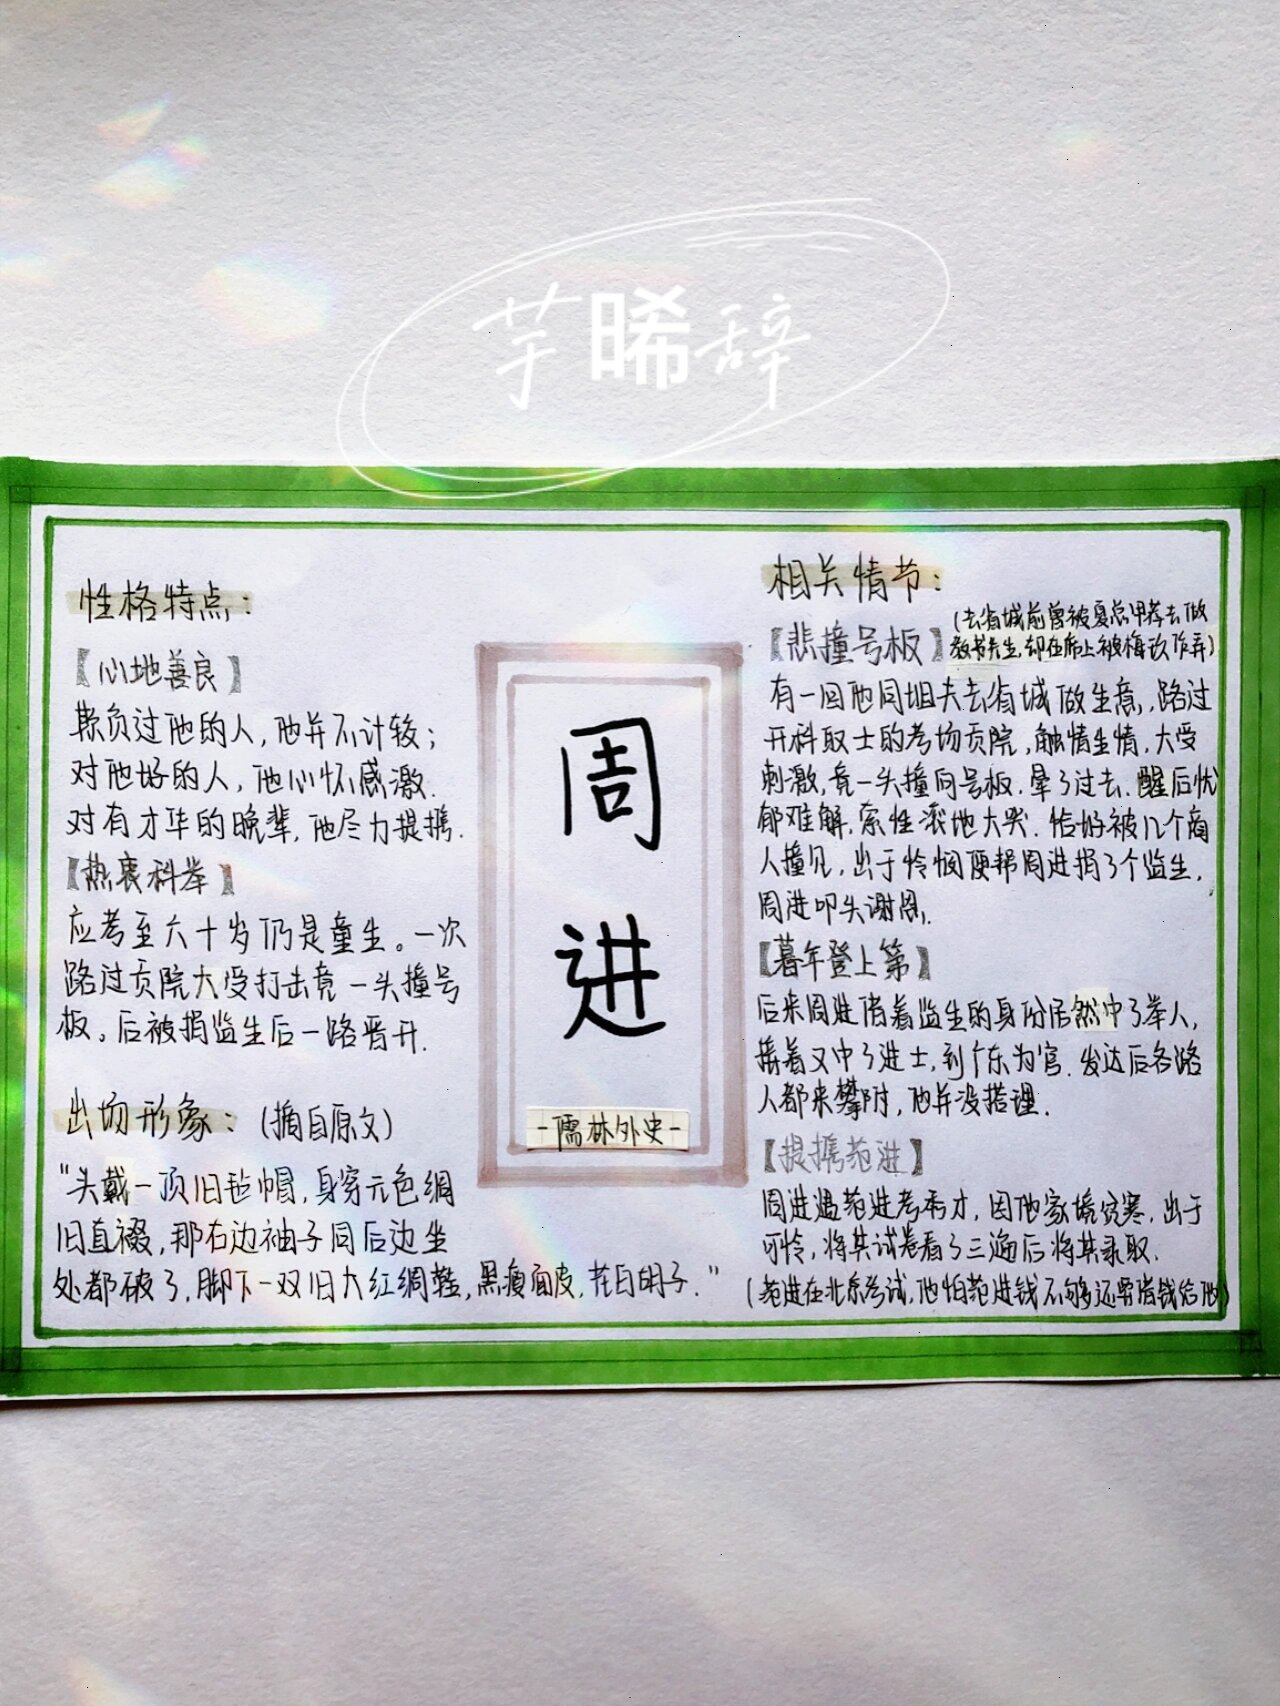 芋晞辞
性格特点:
【心地善良】
欺负过他的人,他并不计较;
对他好的人,他心怀感激.
对有才华的晚辈,他尽力提携.
【热衷科举】
应考至六十岁仍是童生。一次
路过贡院大受打击竟一头撞号
板。后被捐监生后一路晋升.
出场形象:(摘自原文)
"头戴一顶旧毡帽,身穿元色绸
旧直裰,那右边袖子同后边坐
处都破了,脚下一双旧大红绸鞋,黑瘦面皮,花白胡子."
周
进
-儒林外史-
相关情节:
【悲撞号板】
(去省城前曾被夏总甲荐去做
教书先生,却在席上被梅玖作弄)
有一回他同姐夫去省城做生意,路过
开科取士的考场贡院,触情生情,大受
刺激,竟一头撞向号板.晕了过去.醒后忧
郁难解,索性滚地大哭.恰好被几个商
人撞见,出于怜悯便帮周进捐了个监生,
周进叩头谢恩.
【暮年登上第】
后来周进借着监生的身份居然中了举人,
接着又中了进士,到广东为官.发达后各路
人都来攀附,他并没搭理.
【提携范进】
周进遇范进考秀才,因他家境贫寒.出于
可怜,将其试卷看了三遍后将其录取.
(范进在北京考试,他怕范进钱不够还要借钱给他)